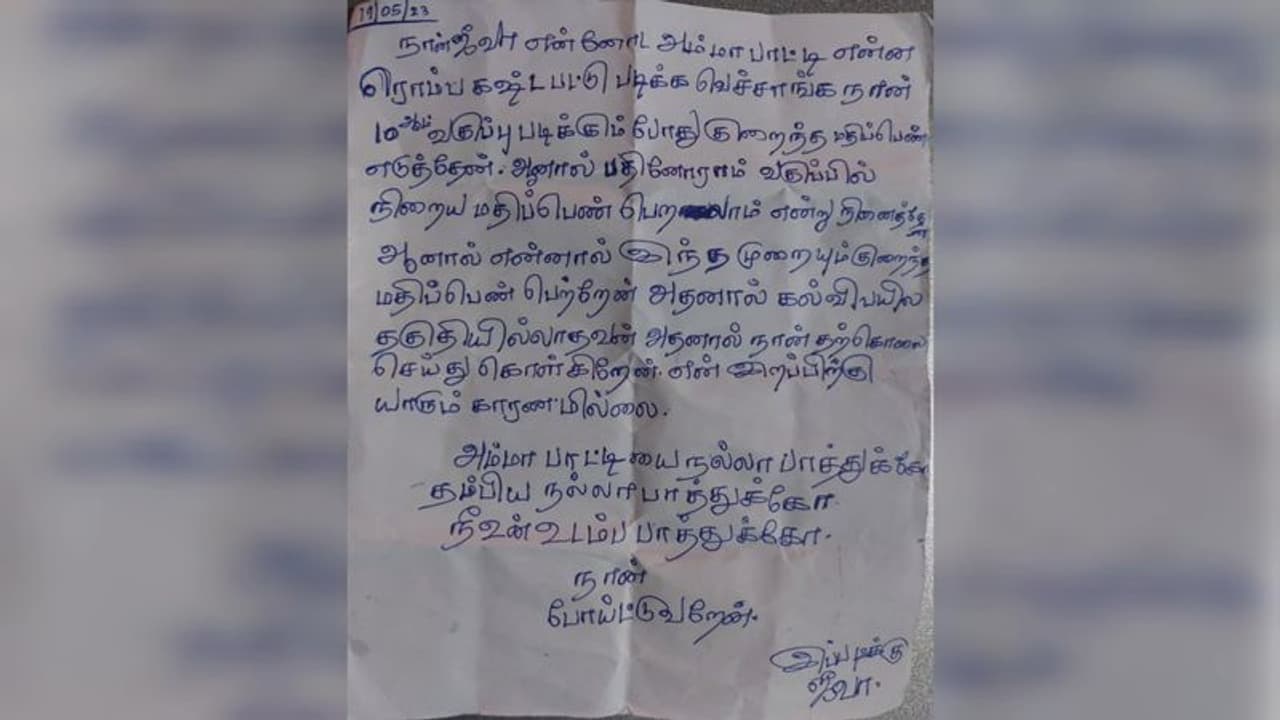 19/05/23
நான் ஜீவா என்னோட அம்மா பாட்டி என்ன
ரொம்ப கஷ்டபட்டு படிக்க வெச்சாங்க நான்
10ஆம் வகுப்பு படிக்கும் போது குறைந்த மதிப்பெண்
எடுத்தேன். ஆனால் பதினோராம் வகுப்பில்
நிறைய மதிப்பெண் பெறலாம் என்று நினைத்தேன்
ஆனால் என்னால் இந்த முறையும் குறைந்த
மதிப்பெண் பெற்றேன் அதனால் கல்வி பயில
தகுதியில்லாதவன் அதனால் நான் தற்கொலை
செய்து கொள்கிறேன். என் இறப்பிற்கு
யாரும் காரணமில்லை.
அம்மா பாட்டியை நல்லா பாத்துக்கோ
தம்பிய நல்லா பாத்துக்கோ.
நீ உன் உடம்ப பாத்துக்கோ.
நான்
போய்ட்டுவறேன்.
இப்படிக்கு
ஜீவா.